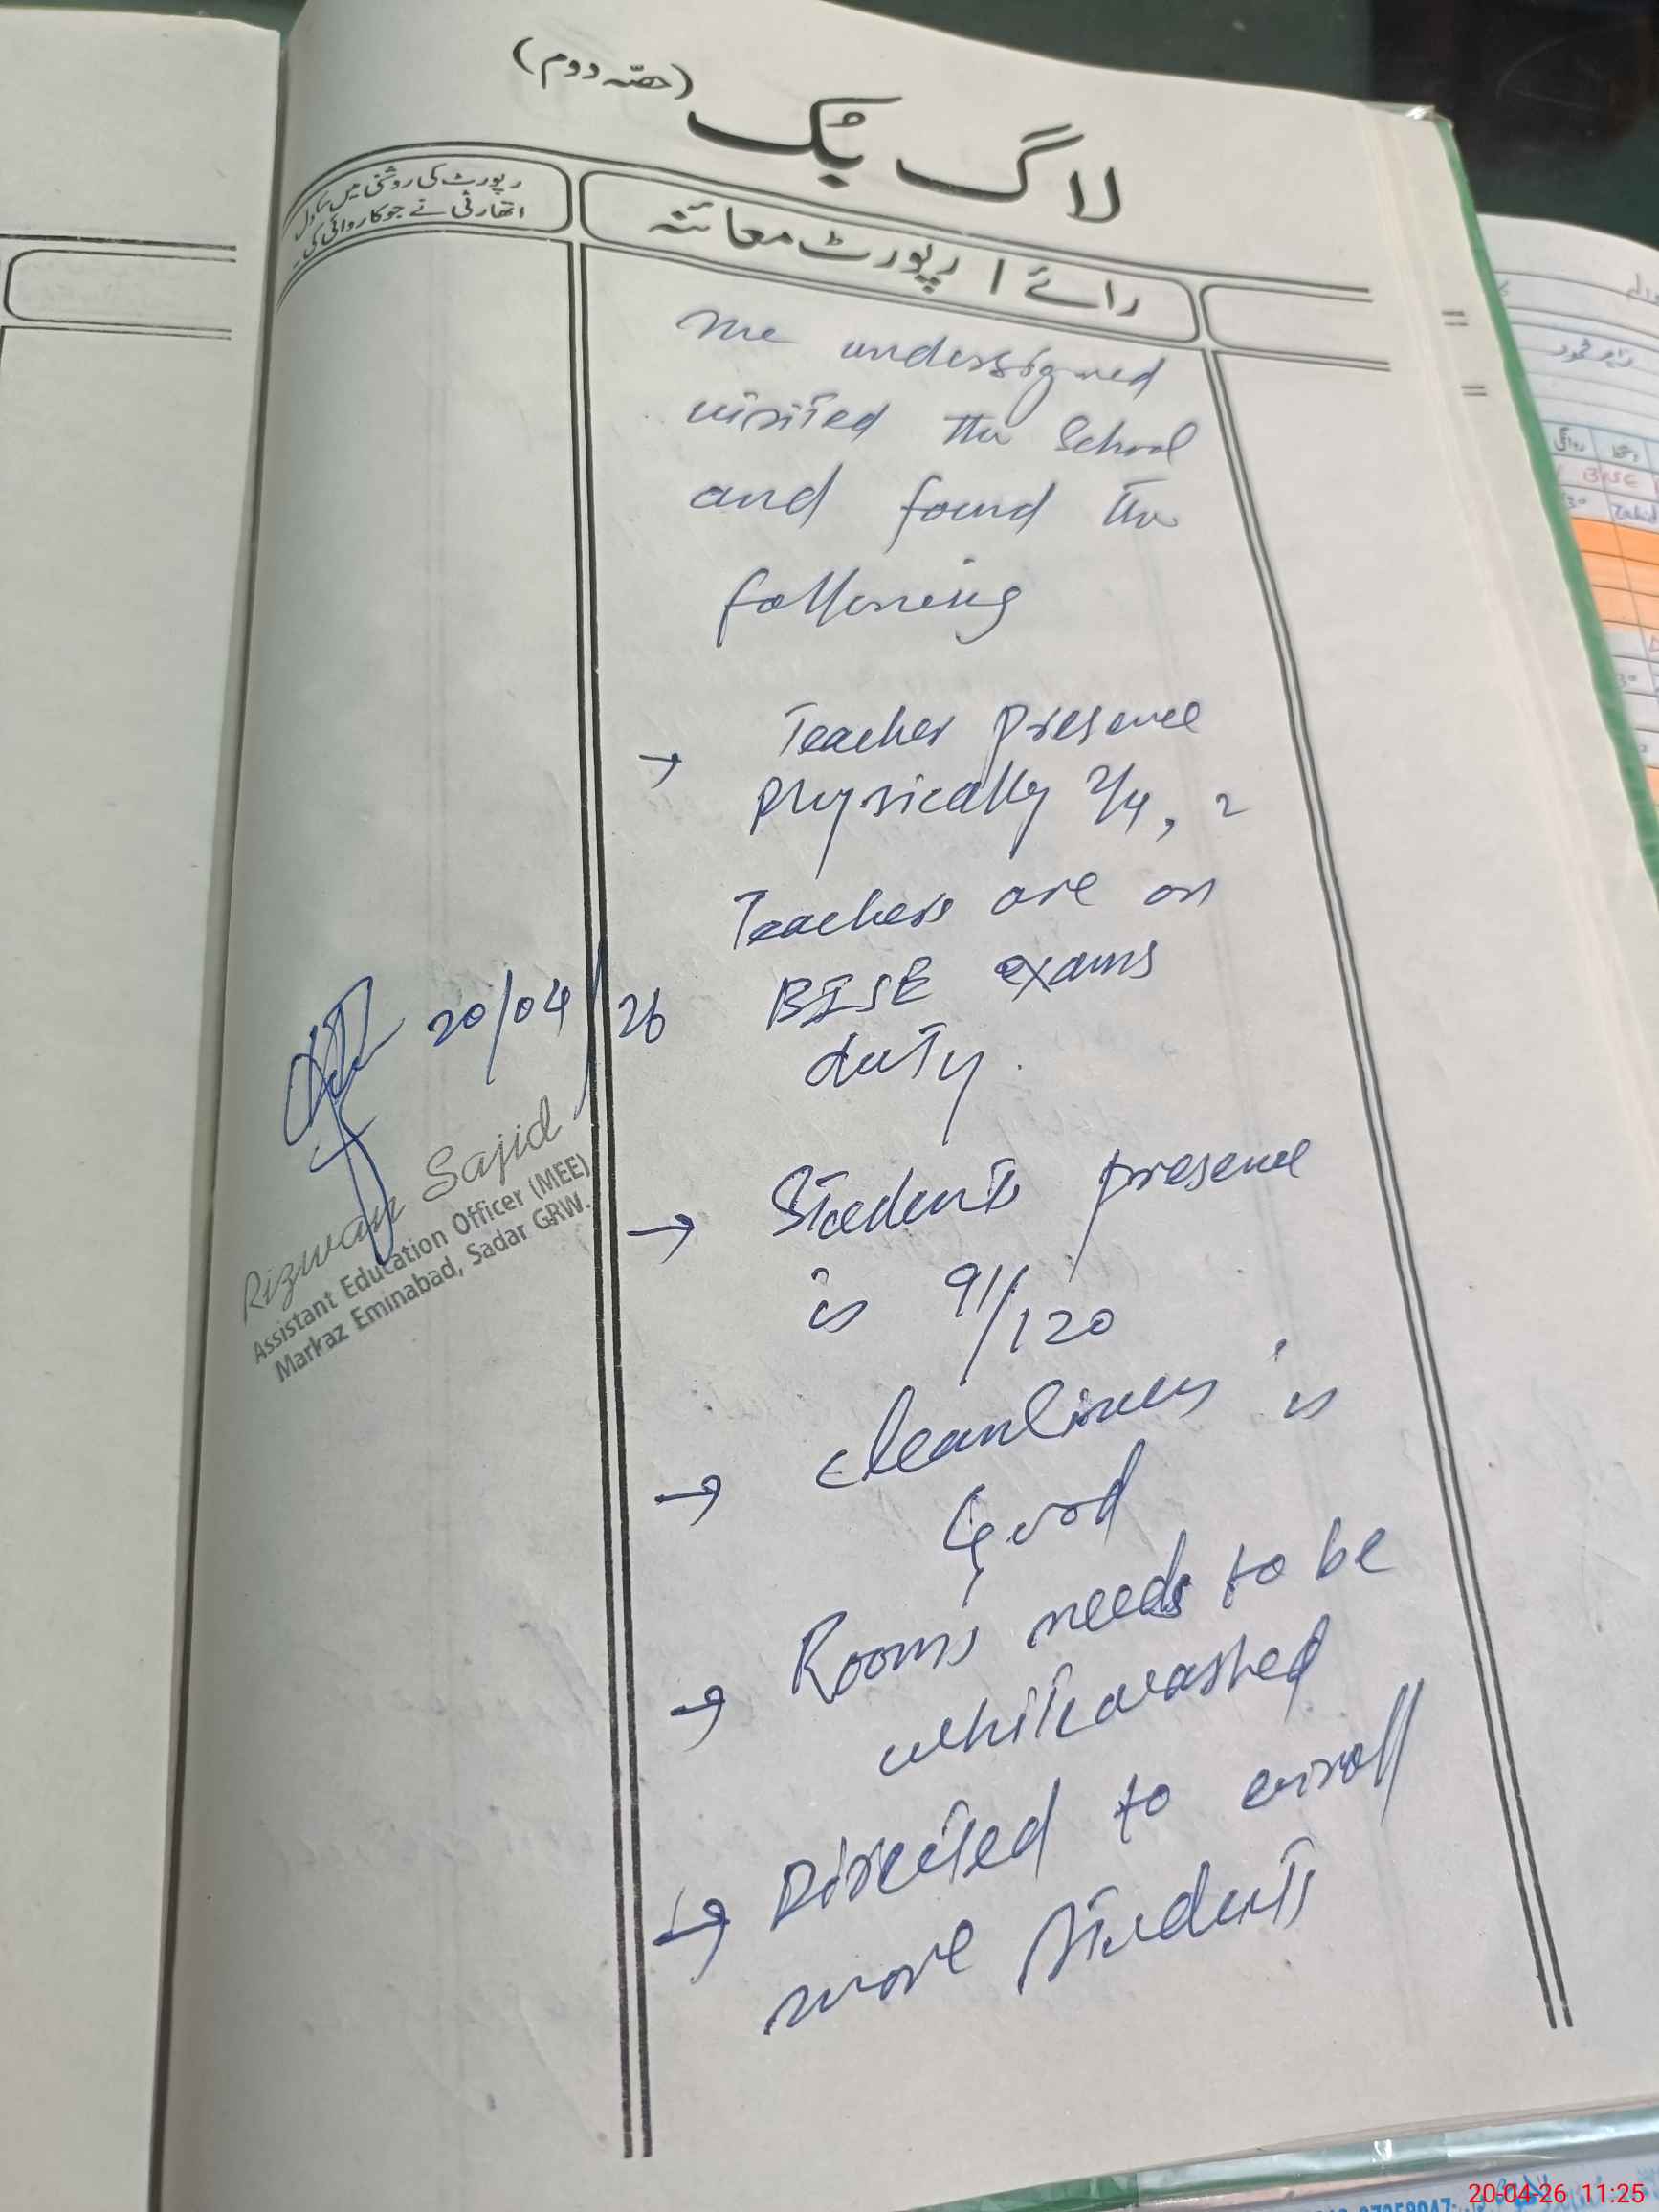 (حصّہ دوم)
لاگ بک
رپورٹ کی روشنی میں مجاز
اتھارٹی نے جو کاروائی کی۔
رائے / رپورٹ معائنہ
The undersigned
visited the School
and found the
following
→ Teacher presence
physically 2/4, 2
Teachers are on
BISE exams
duty.
→ Students presence
is 91/120
→ cleanliness is
Good
→ Rooms needs to be
whitewashed
→ Directed to enroll
more students
20/04/26
Rizwan Sajid
Assistant Education Officer (MEE)
Markaz Eminabad, Sadar GRW.
روانگی
دستخط
BISE
30
Zahid
30
20-04-26 11:25